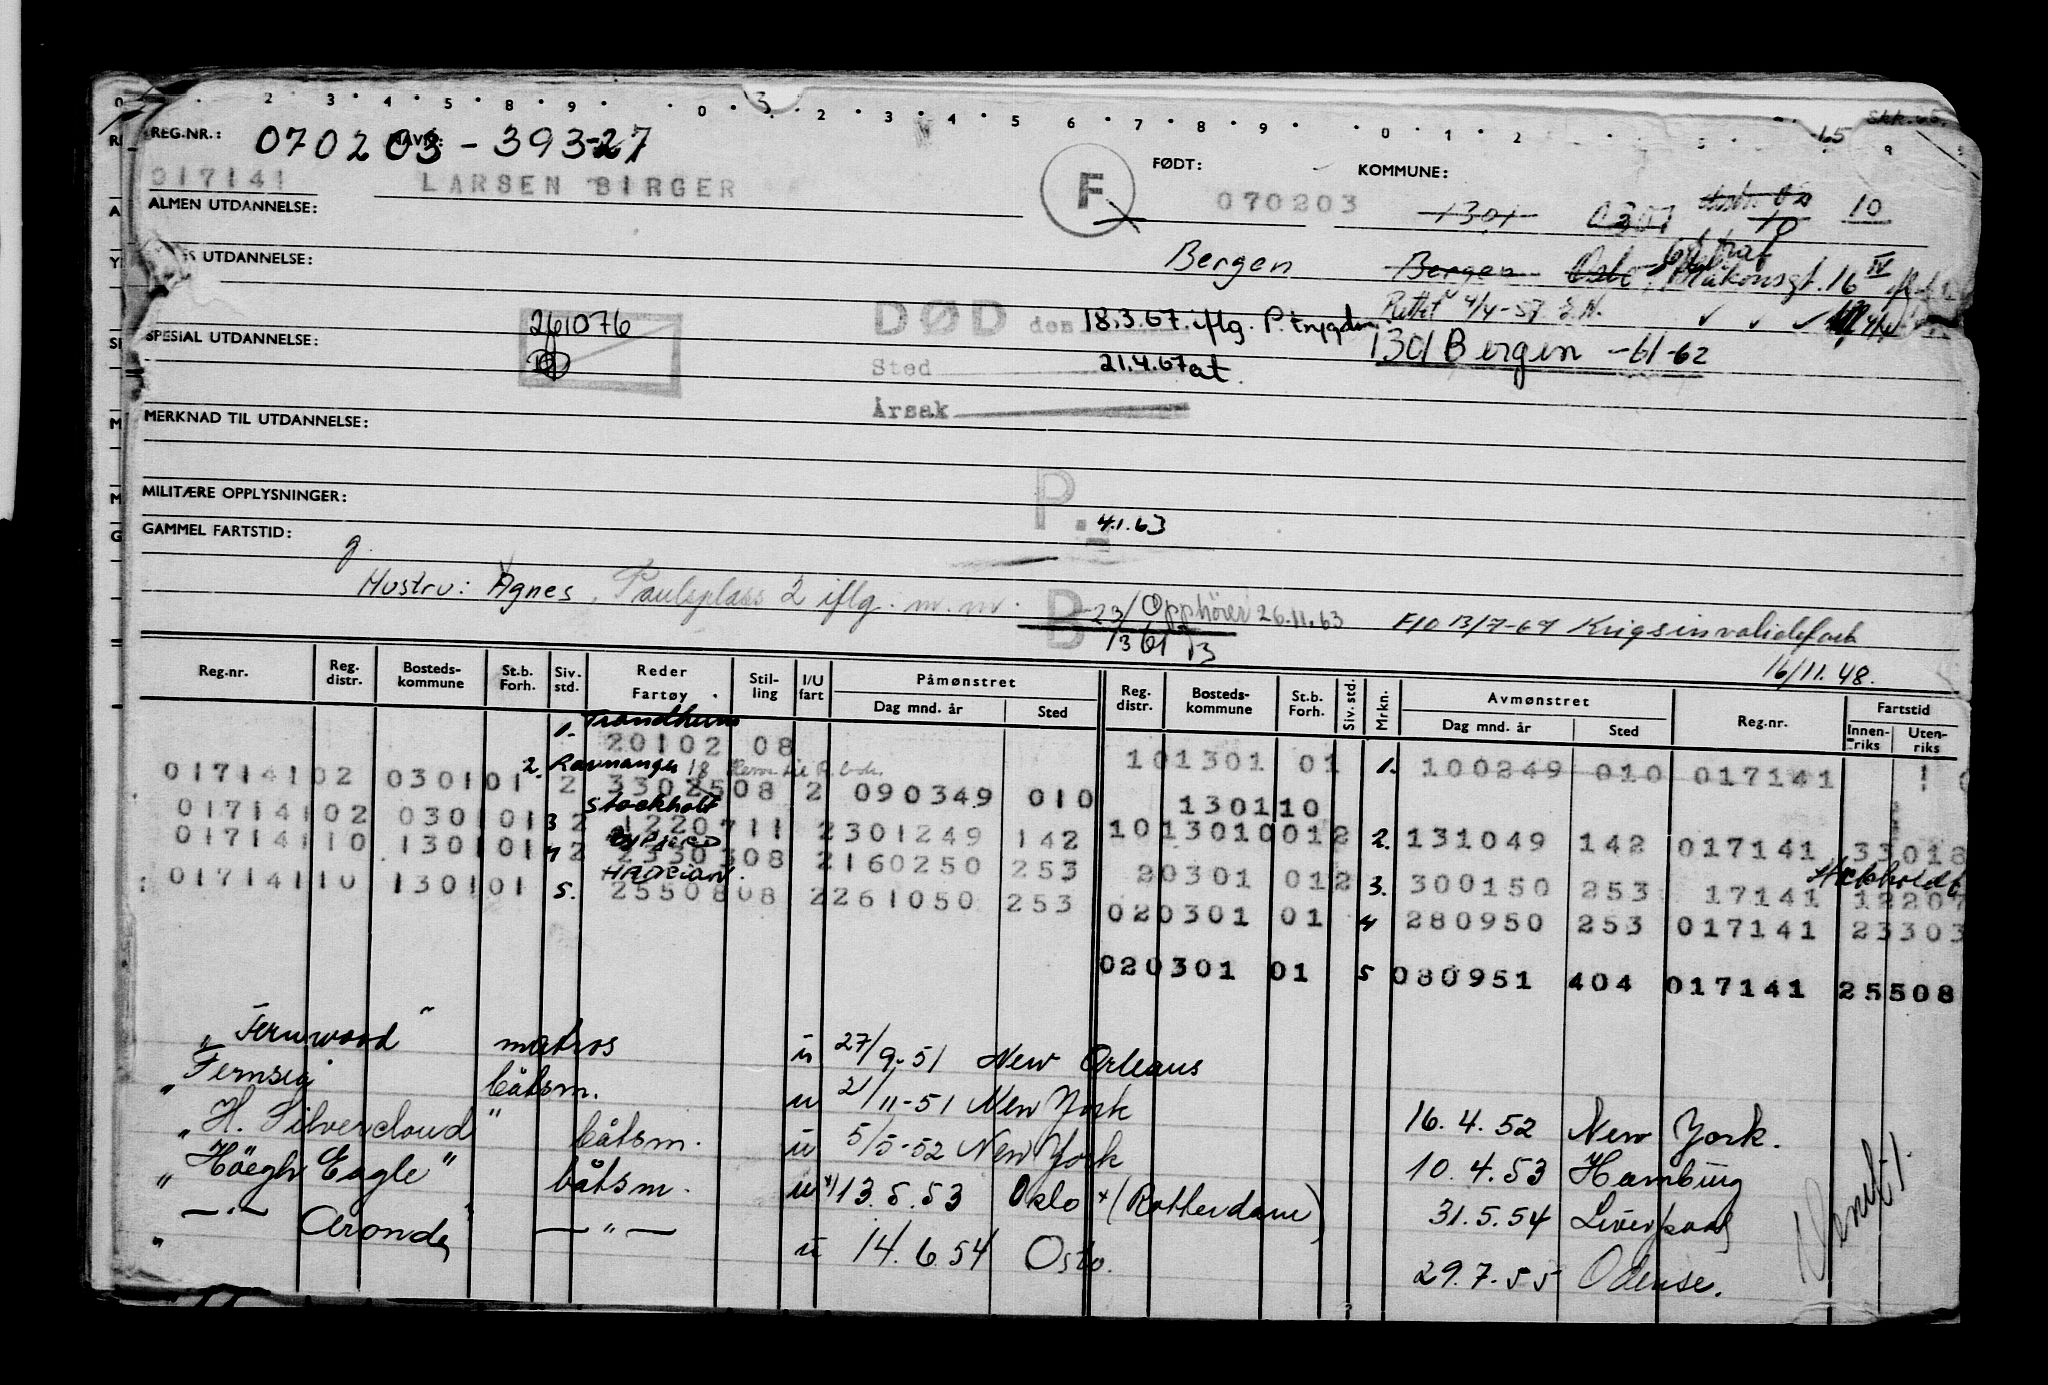 2 . 3 . 4 . 5 . 8 . 9 . . 0 . 3 . 2 . 3 . 4 . 5 6 . 7 . 8 . 9 . . 0 . 1 . 2 65 9
REG.NR.: 070203 - 393-27
017141 LARSEN BIRGER F FØDT: 070203 KOMMUNE: 1301 0301 10 10
ALMEN UTDANNELSE:
UTDANNELSE: Bergen Bergen Oslo Håkonsgt. 16 IV
Rettet 4/4-57 E.N.
261076 DØD den 18.3.67. iflg. P. trygden
SPESIAL UTDANNELSE: 1301 Bergen -61-62
Sted 21.4.67 at.
Årsak
MERKNAD TIL UTDANNELSE:
MILITÆRE OPPLYSNINGER: P. 4.1.63
GAMMEL FARTSTID:
g
Hustru: Agnes, Paulsplass 2 iflg. m.m. B 23/3 61 Opphører 26.11.63 F10 13/7-67 Krigsinvalidesak
16/11.48.
Reg.nr. Reg. distr. Bosteds-kommune St.b. Forh. Siv. std. Reder Fartøy Stil-ling I/U fart Påmønstret Dag mnd. år Sted Reg. distr. Bosteds-kommune St.b. Forh. Siv. std. Mrkn. Avmønstret Dag mnd. år Sted Reg.nr. Fartstid Innen-riks Uten-riks
1. Trondheim
20102 08 101301 01 1. 100249 010 017141
2. Ravnanger 18
01714102 030101 2 3302508 2 090349 010 130110
Stockholt
01714102 030101 3 2 1220711 2301249 142 1013010012 2. 131049 142 017141 33018
01714110 130101 4 2 2330308 2160250 253 20301 012 3. 300150 253 17141 12207
HADRIAN.
01714110 130101 5. 2550808 2261050 253 020301 01 4 280950 253 017141 23303
020301 01 5 080951 404 017141 25508
" Fernwood " matros u 27/9-51 New Orleans
" Fernsea båtsm. u 2/11-51 New York 16.4.52 New York.
" H. Silvercloud " båtsm. u 5/5-52 New York 10.4.53 Hamburg
" Höegh Eagle " båtsm. u x) 13.5.53 Oslo x (Rotterdam) 31.5.54 Liverpool
" —"— Aronde " —"— u 14.6.54 Oslo. 29.7.55 Odense.